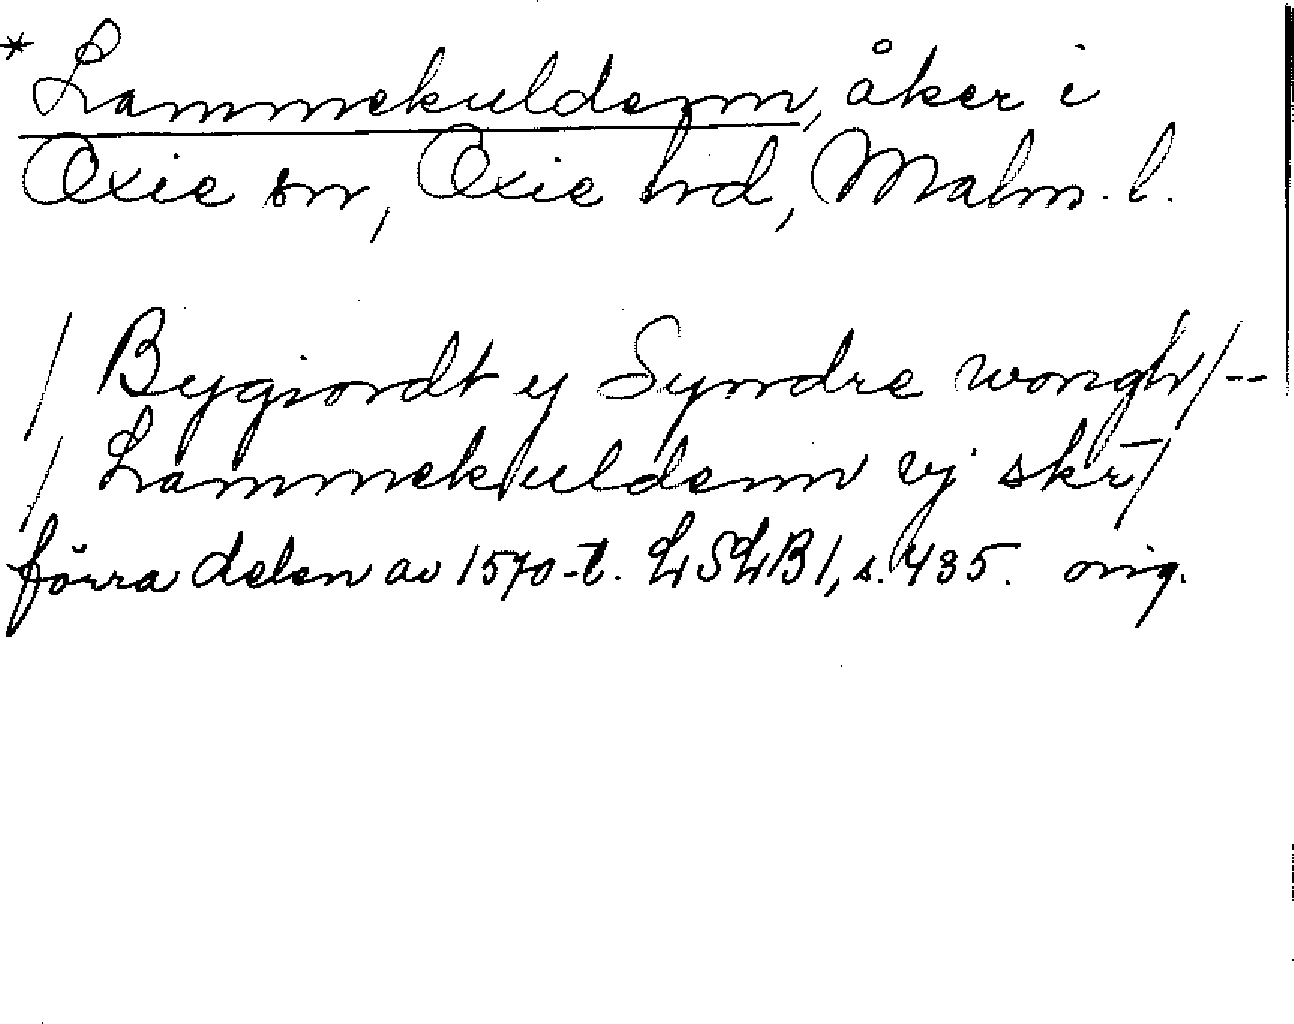 * Lammekuldenn, åker i
Oxie sn, Oxie hd, Malm. l.
/ Bygiordt y Syndre wongh/--
/ Lammekuldenn vj skr̄/
förra delen av 1570-t. LSLB 1, s. 435. orig.